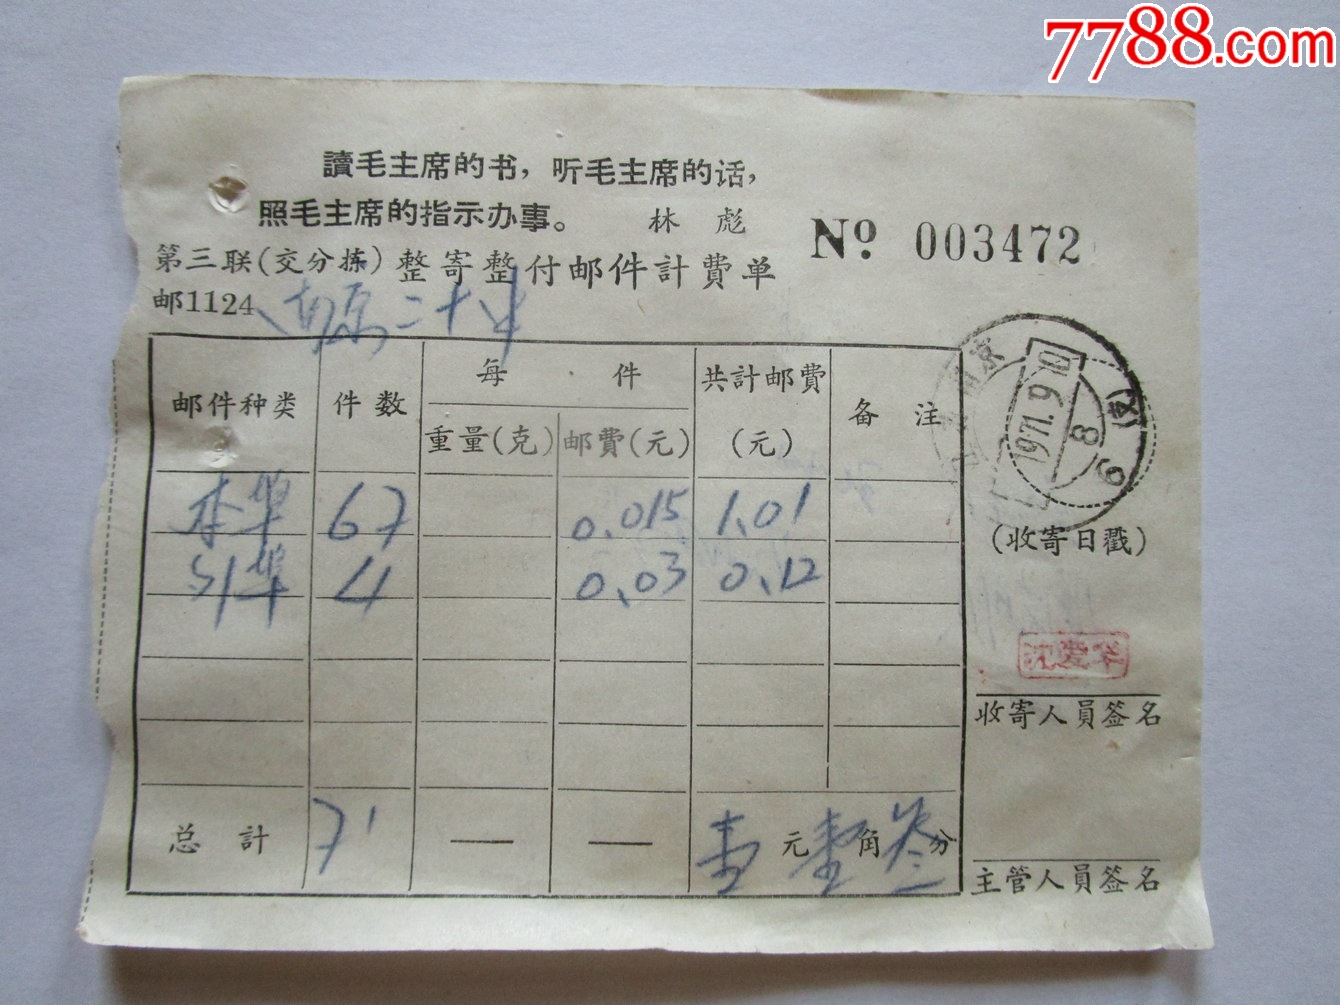 7788.com
讀毛主席的书，听毛主席的话，
照毛主席的指示办事。 林 彪
№ 003472
第三联(交分拣) 整寄整付邮件計費单
邮1124
二十
邮件种类 件数 每件 共計邮費(元) 备注
重量(克) 邮費(元)
本埠 67 0.015 1.01
外埠 4 0.03 0.12
总計 71 — — 壹元壹角叁分
南京
1971.9.10
8
(收寄日戳)
沈爱华
收寄人員签名
主管人員签名